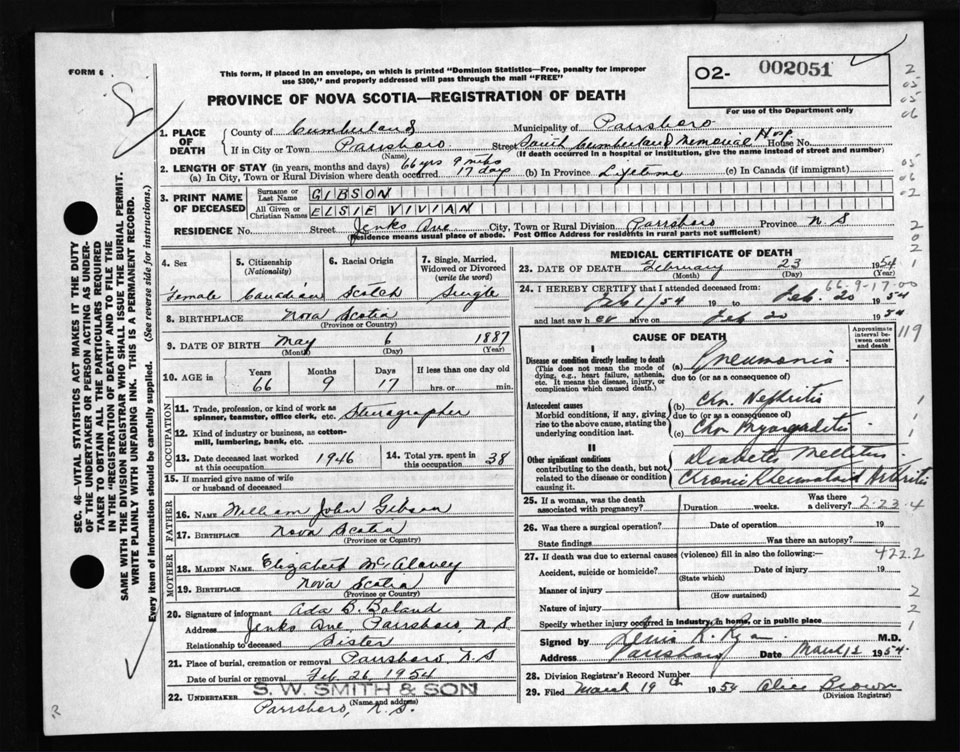 FORM 6
This form, if placed in an envelope, on which is printed "Dominion Statistics—Free, penalty for improper
use $300," and properly addressed will pass through the mail "FREE"
PROVINCE OF NOVA SCOTIA—REGISTRATION OF DEATH
02- 002051
For use of the Department only
1. PLACE OF DEATH
County of Cumberland Municipality of Parrsboro
If in City or Town Parrsboro Street South Cumberland Memorial Hosp House No.
(Name) (If death occurred in a hospital or institution, give the name instead of street and number)
2. LENGTH OF STAY (in years, months and days) 66 yrs 9 mths
(a) In City, Town or Rural Division where death occurred 17 days (b) In Province Lifetime (c) In Canada (if immigrant)
3. PRINT NAME OF DECEASED
Surname or Last Name GIBSON
All Given or Christian Names ELSIE VIVIAN
RESIDENCE No. Street Jenks Ave City, Town or Rural Division Parrsboro Province N S
(Residence means usual place of abode. Post Office Address for residents in rural parts not sufficient)
4. Sex
Female
5. Citizenship
(Nationality)
Canadian
6. Racial Origin
Scotch
7. Single, Married,
Widowed or Divorced
(write the word)
Single
8. BIRTHPLACE Nova Scotia
(Province or Country)
9. DATE OF BIRTH May 6 1887
(Month) (Day) (Year)
10. AGE in Years Months Days If less than one day old
66 9 17 hrs. or min.
OCCUPATION
11. Trade, profession, or kind of work as
spinner, teamster, office clerk, etc. Stenographer
12. Kind of industry or business, as cotton-
mill, lumbering, bank, etc.
13. Date deceased last worked
at this occupation 1946
14. Total yrs. spent in
this occupation 38
15. If married give name of wife
or husband of deceased
FATHER
16. Name William John Gibson
17. Birthplace Nova Scotia
(Province or Country)
MOTHER
18. MAIDEN NAME Elizabeth McAlavey
19. BIRTHPLACE Nova Scotia
(Province or Country)
20. Signature of informant Ada B. Boland
Address Jenks Ave, Parrsboro, N S
Relationship to deceased Sister
21. Place of burial, cremation or removal Parrsboro, N.S
Date of burial or removal Feb 26, 1954
22. UNDERTAKER S. W. SMITH & SON
(Name and address)
Parrsboro, N.S.
MEDICAL CERTIFICATE OF DEATH
23. DATE OF DEATH February 23 1954
(Month) (Day) (Year)
66-9-17-00
24. I HEREBY CERTIFY that I attended deceased from:
Feb 1/54 19 to Feb. 20 1954
and last saw her alive on Feb 20 1954
CAUSE OF DEATH
Approximate
interval between
onset
and death
119
I
Disease or condition directly leading to death
(This does not mean the mode of
dying, e.g., heart failure, asthenia,
etc. It means the disease, injury, or
complication which caused death.)
(a) Pneumonia
due to (or as a consequence of)
Antecedent causes
Morbid conditions, if any, giving
rise to the above cause, stating the
underlying condition last.
(b) Chr. Nephritis
due to (or as a consequence of)
(c) Chr Myocarditis
II
Other significant conditions
contributing to the death, but not
related to the disease or condition
causing it.
Diabetes Mellitus
Chronic Rheumatoid Arthritis
25. If a woman, was the death
associated with pregnancy? Duration weeks. Was there
a delivery? 2-23-4
26. Was there a surgical operation? Date of operation 19
State findings Was there an autopsy?
27. If death was due to external causes (violence) fill in also the following:— 422.2
Accident, suicide or homicide? Date of injury 19
(State which)
Manner of injury
(How sustained)
Nature of injury
Specify whether injury occurred in industry, in home, or in public place
Signed by R. Ryan M.D.
Address Parrsboro Date March 12 1954
28. Division Registrar's Record Number
29. Filed March 19th 1954 Alice Brown
(Division Registrar)
SEC. 46—VITAL STATISTICS ACT MAKES IT THE DUTY
OF THE UNDERTAKER OR PERSON ACTING AS UNDER-
TAKER TO OBTAIN ALL THE PARTICULARS REQUIRED
IN THE "REGISTRATION OF DEATH" AND TO FILE THE
SAME WITH THE DIVISION REGISTRAR WHO SHALL ISSUE THE BURIAL PERMIT.
WRITE PLAINLY WITH UNFADING INK. THIS IS A PERMANENT RECORD.
Every item of information should be carefully supplied. (See reverse side for instructions.)